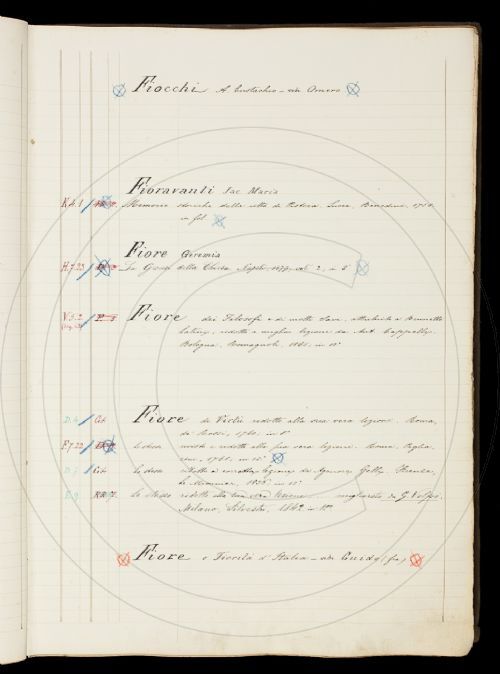 Fiocchi A Eustachio - vedi Omero
Fioravanti Jac. Maria
K.4.1 Memorie storiche della città di Pistoia. Lucca, Benedini, 1758.
in fol.
Fiore Geremia
H.7.23 La Chiesa Napoli, 1877, vol. 2, in 8°
V.5.2 Fiore dei Filosofi e di molti Savi, attribuito a Brunetto
Latini, ridotto a miglior lezione da Ant. Cappelli.
Bologna, Romagnoli, 1865, in 12°
D.4 Cit. Fiore di Virtù ridotto alla sua vera lezione. Roma,
de Rossi, 1740, in 8°
F.7.22 Lo stesso ridotto alla sua vera lezione. Roma,
in 12°
Cit. Lo stesso ridotto a corretta lezione da Agenore Gelli. Firenze,
Le Monnier, 1855, in 12°
Lo stesso ridotto alla sua vera lezione migliorata da G. Volpi.
Milano, Silvestri, 1842
Fiore o Fiorità d'Italia - vedi Guido (fra)